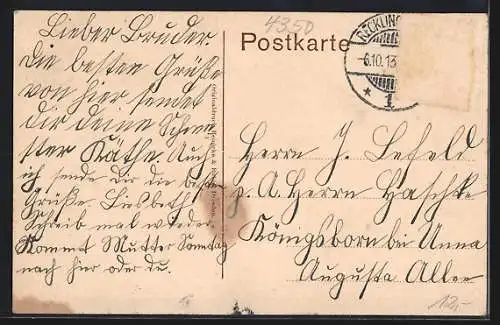 Lieber Bruder.
Die besten Grüße
von hier sendet
dir deine Schwe-
ster Käthe. Auch
ich sende dir die besten
Grüße. Liesbeth
Schreib mal wieder.
Kommt Mutter Sonntag
nach hier oder du.
4350
Postkarte
RECKLING
-6.10.13
Herrn J. Lefeld
p. A. Herrn Haschke
Königsborn bei Unna
Augusta Allee
12,-